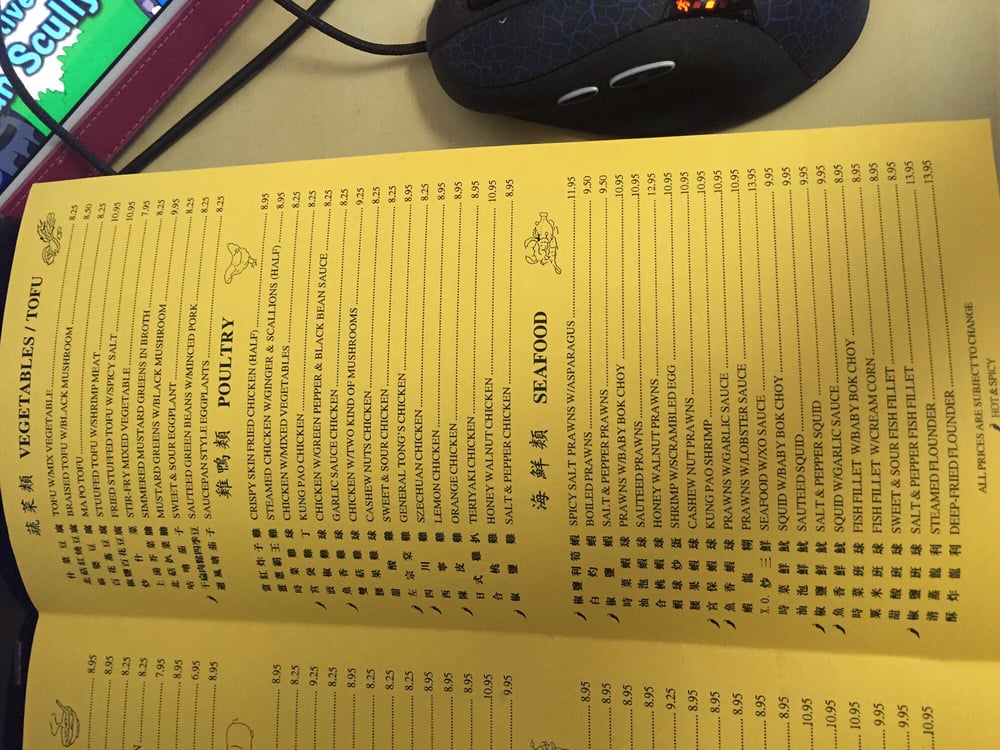 蔬菜類 VEGETABLES / TOFU
什菜豆腐 TOFU W/MIX VEGETABLE 8.25
北菇紅燒豆腐 BRAISED TOFU W/BLACK MUSHROOM 8.50
麻婆豆腐 MA PO TOFU 8.25
百花蒸豆腐 STUFFED TOFU W/SHRIMP MEAT 10.95
椒鹽百花豆腐 FRIED STUFFED TOFU W/SPICY SALT 10.95
炒什菜 STIR-FRY MIXED VEGETABLE 7.95
上湯芥菜膽 SIMMERED MUSTARD GREENS IN BROTH 8.25
北菇扒菜膽 MUSTARD GREENS W/BLACK MUSHROOM 9.95
咕嚕茄子 SWEET & SOUR EGGPLANT 8.25
干扁肉鬆四季豆 SAUTEED GREEN BEANS W/MINCED PORK 8.25
避風塘茄子 SAUCEPAN STYLE EGGPLANTS 8.25
雞鴨類 POULTRY
當紅炸子雞 CRISPY SKIN FRIED CHICKEN (HALF) 8.95
薑蔥霸王雞 STEAMED CHICKEN W/GINGER & SCALLIONS (HALF) 8.95
時菜雞球 CHICKEN W/MIXED VEGETABLES 8.25
宮保雞丁 KUNG PAO CHICKEN 8.25
豉椒雞球 CHICKEN W/GREEN PEPPER & BLACK BEAN SAUCE 8.25
魚香雞球 GARLIC SAUCE CHICKEN 8.25
雙菇雞球 CHICKEN W/TWO KIND OF MUSHROOMS 9.25
腰果雞球 CASHEW NUTS CHICKEN 8.25
甜酸雞 SWEET & SOUR CHICKEN 8.25
左宗棠雞 GENERAL TONG'S CHICKEN 8.95
四川雞 SZECHUAN CHICKEN 8.25
西寧雞 LEMON CHICKEN 8.95
陳皮雞 ORANGE CHICKEN 8.95
日式雞扒 TERIYAKI CHICKEN 8.95
合桃雞 HONEY WALNUT CHICKEN 10.95
椒鹽雞 SALT & PEPPER CHICKEN 8.95
海鮮類 SEAFOOD
椒鹽利筍蝦 SPICY SALT PRAWNS W/ASPARAGUS 11.95
白灼蝦 BOILED PRAWNS 9.50
椒鹽蝦 SALT & PEPPER PRAWNS 9.50
時菜蝦球 PRAWNS W/BABY BOK CHOY 10.95
油泡蝦球 SAUTEED PRAWNS 10.95
合桃蝦球 HONEY WALNUT PRAWNS 12.95
蝦球炒蛋 SHRIMP W/SCRAMBLED EGG 10.95
腰果蝦球 CASHEW NUT PRAWNS 10.95
宮保蝦球 KUNG PAO SHRIMP 10.95
魚香蝦球 PRAWNS W/GARLIC SAUCE 10.95
蝦龍糊 PRAWNS W/LOBSTER SAUCE 10.95
X.O.炒三鮮 SEAFOOD W/XO SAUCE 13.95
時菜鮮魷 SQUID W/BABY BOK CHOY 9.95
油泡鮮魷 SAUTEED SQUID 9.95
椒鹽鮮魷 SALT & PEPPER SQUID 9.95
魚香鮮魷 SQUID W/GARLIC SAUCE 9.95
時菜班球 FISH FILLET W/BABY BOK CHOY 8.95
粟米班球 FISH FILLET W/CREAM CORN 8.95
甜酸班球 SWEET & SOUR FISH FILLET 8.95
椒鹽班球 SALT & PEPPER FISH FILLET 8.95
清蒸龍利 STEAMED FLOUNDER 13.95
酥炸龍利 DEEP-FRIED FLOUNDER 13.95
ALL PRICES ARE SUBJECT TO CHANGE
HOT & SPICY
8.95
8.95
8.25
8.25
7.95
8.95
6.95
8.95
8.95
8.25
9.25
8.25
8.95
8.25
8.25
8.25
8.95
8.95
8.95
10.95
9.95
8.95
8.95
8.95
8.95
9.25
8.95
8.95
9.95
8.95
8.95
10.95
10.95
10.95
9.95
9.95
10.95
Scully